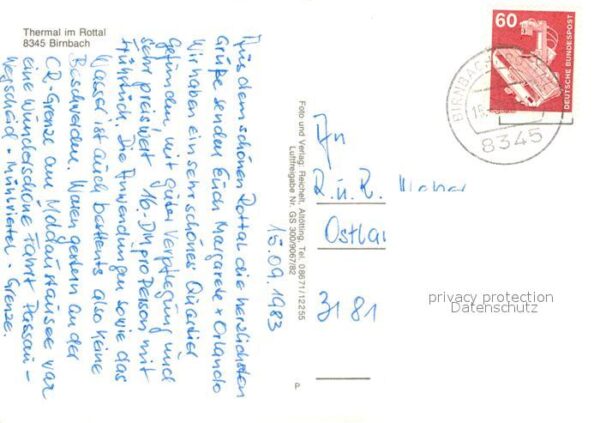 Thermal im Rottal
8345 Birnbach
15.09.1983
Aus dem schönen Rottal die herzlichsten
Grüße senden Euch Margarete + Orlando
Wir haben ein sehr schönes Quartier
gefunden mit guter Verpflegung und
sehr preiswert 16.- DM pro Person mit
Frühstück. Die Anwendungen sowie das
Wasser ist auch bestens also keine
Beschwerden. Waren gestern an der
CR-Grenze am Moldaustausee war
eine wunderschöne Fahrt Passau -
Wegscheid - Mühlviertel - Grenze.
Foto und Verlag: Reichelt, Altötting, Tel. 08671/12255
Luftfreigabe Nr. GS 300/9067/82
P
60
DEUTSCHE BUNDESPOST
BIRNBACH
8345
An
R. u. R.
3181
privacy protection
Datenschutz